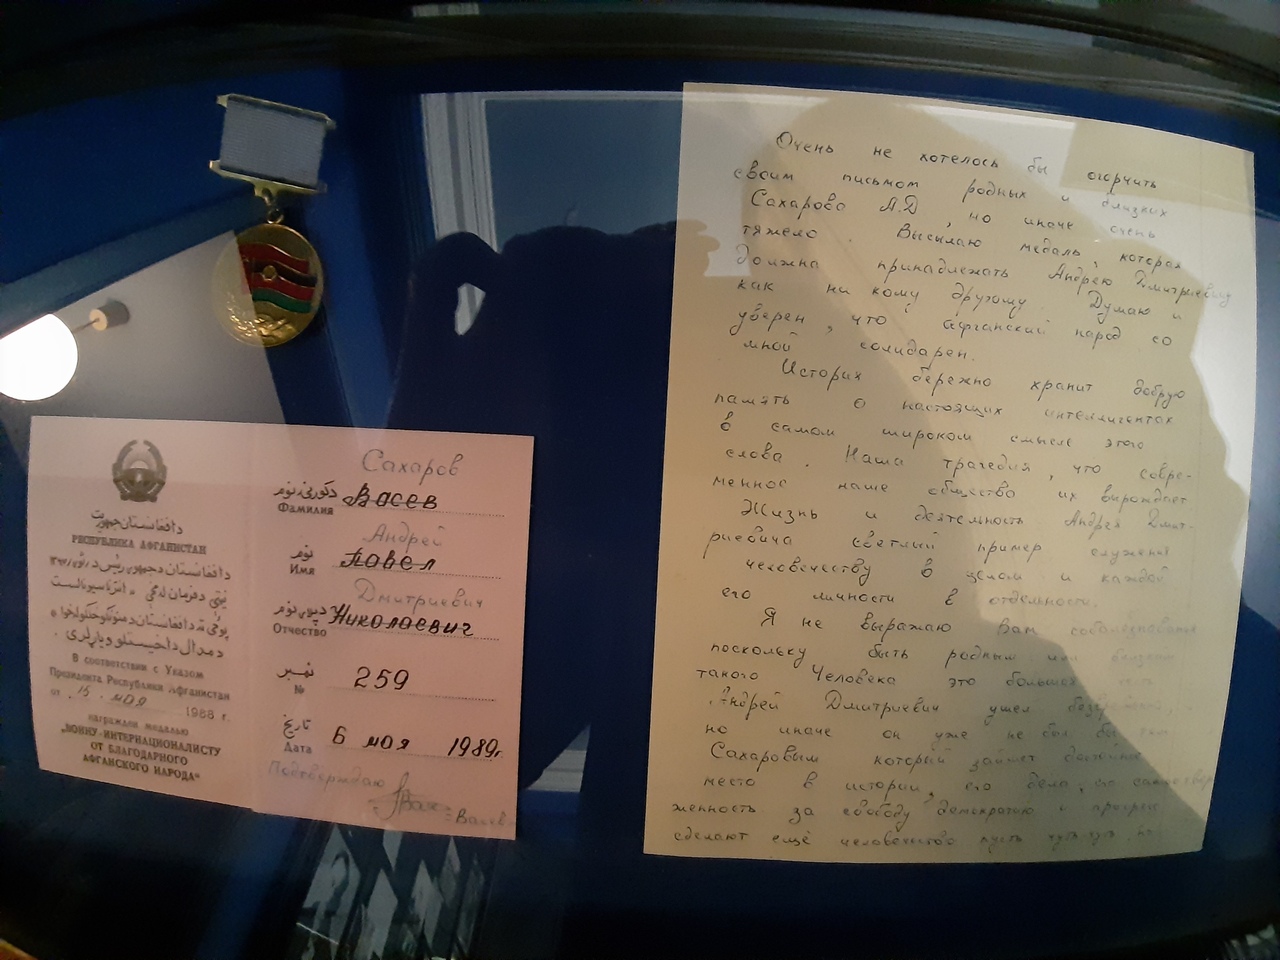 РЕСПУБЛИКА АФГАНИСТАН
В соответствии с Указом
Президента Республики Афганистан
от 15 мая 1988 г.
награжден медалью
„ВОИНУ-ИНТЕРНАЦИОНАЛИСТУ
ОТ БЛАГОДАРНОГО
АФГАНСКОГО НАРОДА"
Сахаров
Васев
Фамилия
Андрей
نوم
Имя
Павел
Дмитриевич
Отчество
Николаевич
نمبر
№
259
تاریخ
Дата
6 мая 1989г.
Подтверждаю
Васев
Очень не хотелось бы огорчить
своим письмом родных и близких
Сахарова А.Д, но иначе очень
тяжело. Высылаю медаль, которая
должна принадлежать Андрею Дмитриевичу
как ни кому другому. Думаю и
уверен, что афганский народ со
мной солидарен.
Историх бережно хранит добрую
память о настоящих интеллигентах
в самом широком смысле этого
слова. Наша трагедия, что совре-
менное наше общество их вырождает.
Жизнь и деятельность Андрея Дмит-
риевича светлый пример служения
человечеству в целом и каждой
его личности в отдельности.
Я не выражаю Вам соболезнования
поскольку быть родным или близким
такого Человека это большая честь
Андрей Дмитриевич ушел
но иначе он уже не был бы
Сахаровым который займет достойное
место в истории, его дела, его
женность за свободу, демократию и прогресс
сделают ещё человечество пусть чуть чуть